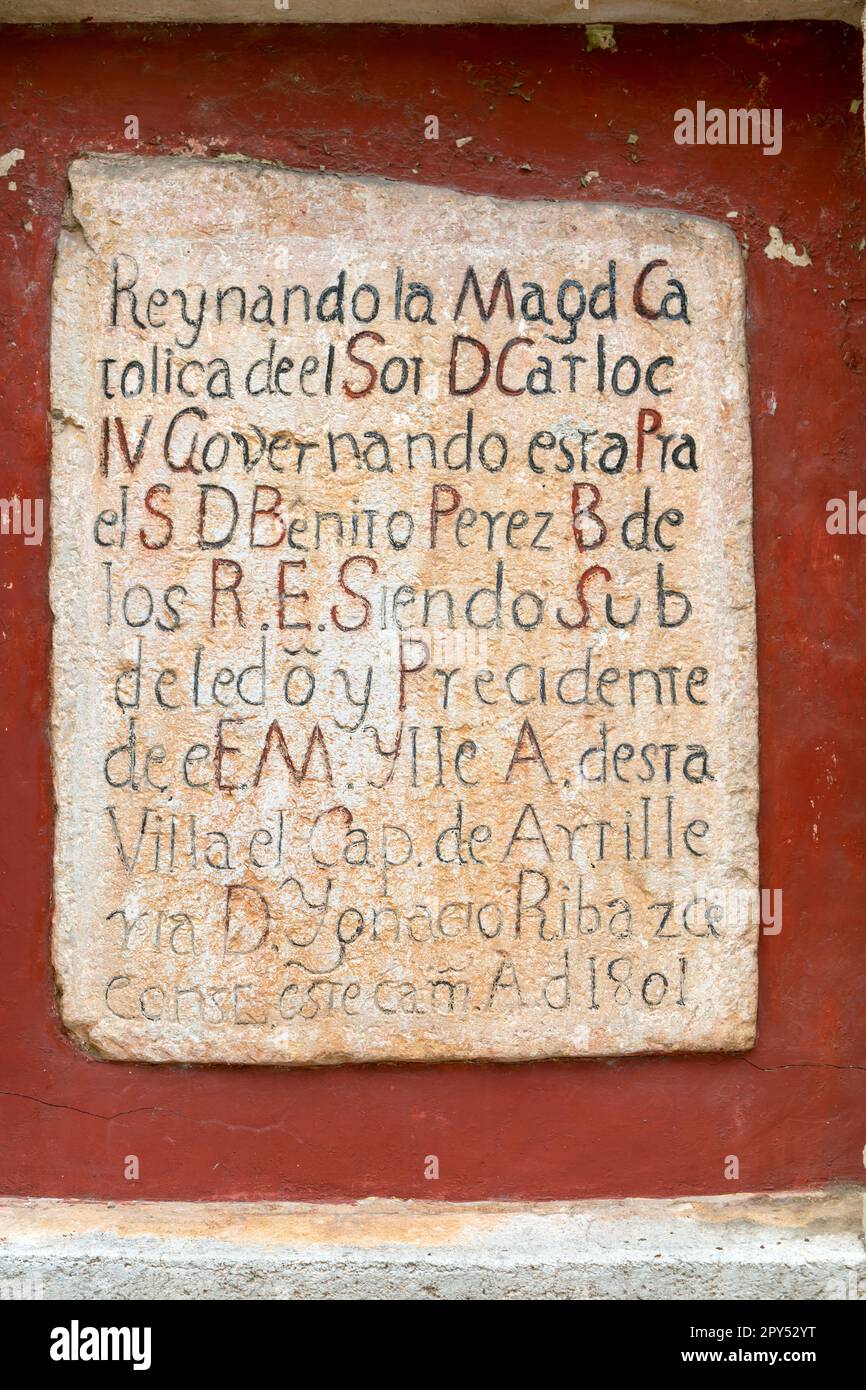 Reynando la Magd Ca
tolica de el Sor D Carloc
IV Governando esta Pra
el S D Bênito Perez B de
los R. E. Siendo Sub
deledõ y Precidente
de el E. M. Ylle A. desta
Villa el Cap. de Artille
ria D. Ygnacio Ribazce
este cam̃. A. d 1801
alamy
Image ID: 2PY52YT
www.alamy.com